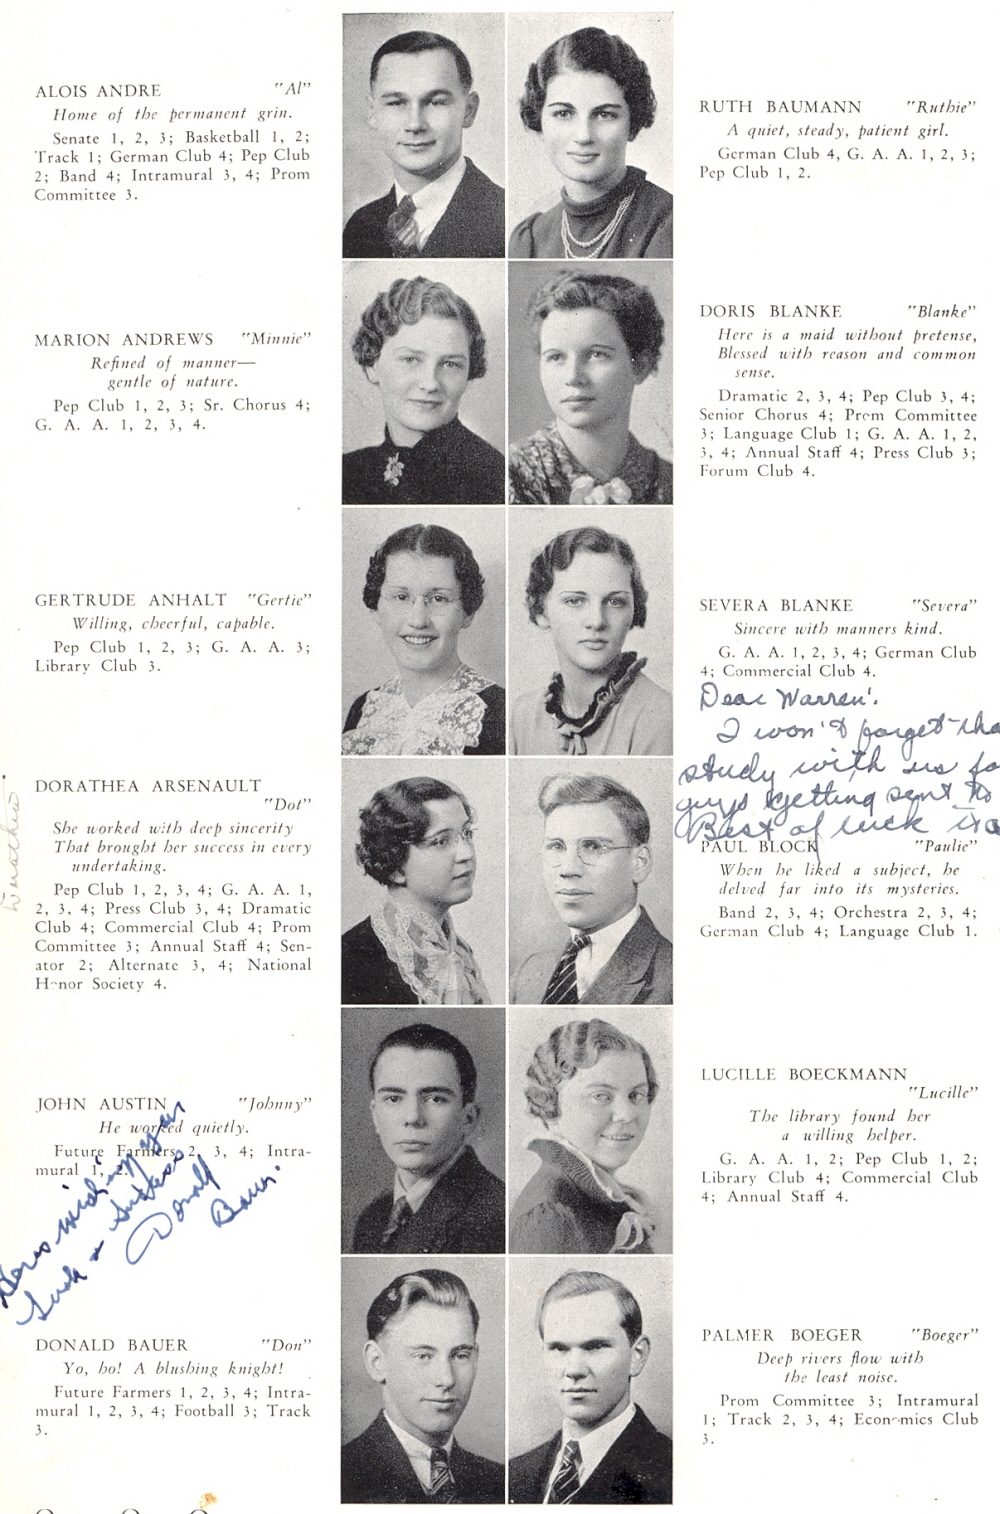 ALOIS ANDRE "Al"
Home of the permanent grin.
Senate 1, 2, 3; Basketball 1, 2;
Track 1; German Club 4; Pep Club
2; Band 4; Intramural 3, 4; Prom
Committee 3.
MARION ANDREWS "Minnie"
Refined of manner—
gentle of nature.
Pep Club 1, 2, 3; Sr. Chorus 4;
G. A. A. 1, 2, 3, 4.
GERTRUDE ANHALT "Gertie"
Willing, cheerful, capable.
Pep Club 1, 2, 3; G. A. A. 3;
Library Club 3.
DORATHEA ARSENAULT
"Dot"
She worked with deep sincerity
That brought her success in every
undertaking.
Pep Club 1, 2, 3, 4; G. A. A. 1,
2, 3, 4; Press Club 3, 4; Dramatic
Club 4; Commercial Club 4; Prom
Committee 3; Annual Staff 4; Sen-
ator 2; Alternate 3, 4; National
Honor Society 4.
JOHN AUSTIN "Johnny"
He worked quietly.
Future Farmers 2, 3, 4; Intra-
mural 1, 2.
luck & success
Donald
Bauer
DONALD BAUER "Don"
Yo, ho! A blushing knight!
Future Farmers 1, 2, 3, 4; Intra-
mural 1, 2, 3, 4; Football 3; Track
3.
RUTH BAUMANN "Ruthie"
A quiet, steady, patient girl.
German Club 4, G. A. A. 1, 2, 3;
Pep Club 1, 2.
DORIS BLANKE "Blanke"
Here is a maid without pretense,
Blessed with reason and common
sense.
Dramatic 2, 3, 4; Pep Club 3, 4;
Senior Chorus 4; Prom Committee
3; Language Club 1; G. A. A. 1, 2,
3, 4; Annual Staff 4; Press Club 3;
Forum Club 4.
SEVERA BLANKE "Severa"
Sincere with manners kind.
G. A. A. 1, 2, 3, 4; German Club
4; Commercial Club 4.
Dear Warren!
I won't forget
study with us
guys getting sent to
Best of luck
PAUL BLOCK "Paulie"
When he liked a subject, he
delved far into its mysteries.
Band 2, 3, 4; Orchestra 2, 3, 4;
German Club 4; Language Club 1.
LUCILLE BOECKMANN
"Lucille"
The library found her
a willing helper.
G. A. A. 1, 2; Pep Club 1, 2;
Library Club 4; Commercial Club
4; Annual Staff 4.
PALMER BOEGER "Boeger"
Deep rivers flow with
the least noise.
Prom Committee 3; Intramural
1; Track 2, 3, 4; Economics Club
3.